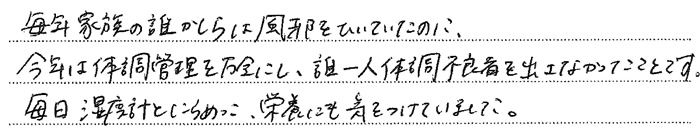 毎年家族の誰かしらは風邪をひいていたのに、
今年は体調管理を万全にし、誰一人体調不良者を出さなかったことです。
毎日湿度計とにらめっこ、栄養にも気をつけていました。